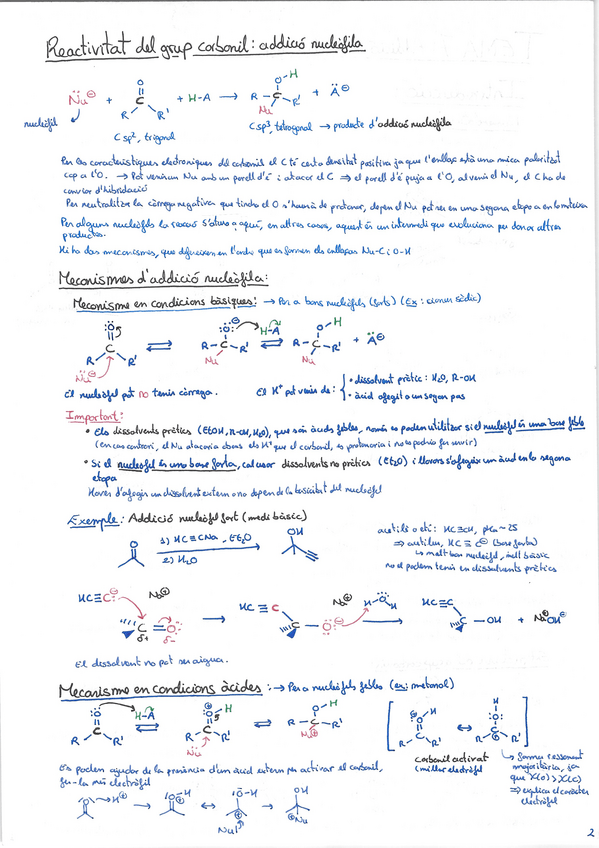 Reactivitat del grup carbonil: addició nucleòfila
Nu⊖ + R C O R' + H-A → R-C-R' O-H Nu + A⊖
nucleòfil
C sp², trigonal
C sp³, tetragonal → producte d'addició nucleòfila
Per les característiques electròniques del carbonil el C té certa densitat positiva ja que l'enllaç està una mica polaritzat
cap a l'O. → Pot venir un Nu amb un parell d'é i atacar el C ⇒ el parell d'é puja a l'O, al venir el Nu, el C ha de
canviar d'hibridació
Per neutralitzar la càrrega negativa que tindrà el O s'haurà de protonar, depèn el Nu pot ser en una segona etapa o en la mateixa
Per alguns nucleòfils la reacció s'atura aquí, en altres casos, aquest és un intermedi que evoluciona per donar altres
productes.
Hi ha dos mecanismes, que difereixen en l'ordre que es formen els enllaços Nu-C i O-H
Mecanismes d'addició nucleòfila:
Mecanisme en condicions bàsiques: → Per a bons nucleòfils (forts) (Ex: cianur sòdic)
:O: R R' Nu⊖ ⇌ :O:⊖ R-C-R' Nu H-A ⇌ O-H R-C-R' Nu + A⊖
El nucleòfil pot no tenir càrrega.
El H⁺ pot venir de:
• dissolvent pròtic: H₂O, R-OH
• àcid afegit a un segon pas
Important:
• Els dissolvents pròtics (EtOH, R-OH, H₂O), que són àcids febles, només es poden utilitzar si el nucleòfil és una base feble
(en cas contrari, el Nu atacaria abans els H⁺ que el carbonil, es protonaria i no es podria fer servir)
• Si el nucleòfil és una base forta, cal usar dissolvents no pròtics (Et₂O) i llavors s'afegeix un àcid en la segona
etapa
Haver d'afegir un dissolvent extern o no depèn de la basicitat del nucleòfil
Exemple: Addició nucleòfil fort (medi bàsic)
O 1) HC≡CNa, Et₂O 2) H₂O OH
acetilè o etí: HC≡CH, pKa ~ 25
⇒ acetilur, HC≡C⊖ (base forta)
↳ molt bon nucleòfil, molt bàsic
no el podem tenir en dissolvents pròtics
HC≡C:⊖ Na⊕ C=O: δ+ δ- → HC≡C C O:⊖ Na⊕ H O H → HC≡C C-OH + NaOH
El dissolvent no pot ser aigua.
Mecanisme en condicions àcides: → Per a nucleòfils febles (ex: metanol)
:O: R C R' H-A ⇌ ⊕O H R C R' Nu ⇌ O-H R-C-R' Nu⊕
[⊕O H R C R' ↔ H :O: R C⊕ R']
carbonil activat
(millor electròfil)
↳ forma ressonant
majoritària, ja
que χ(O) > χ(C)
⇒ explica el caràcter
electròfil
Es poden ajudar de la presència d'un àcid extern per activar el carbonil,
fer-la més electròfil
O H⊕ → :O-H ⊕ ↔ :O-H ⊕ Nu → OH Nu
2